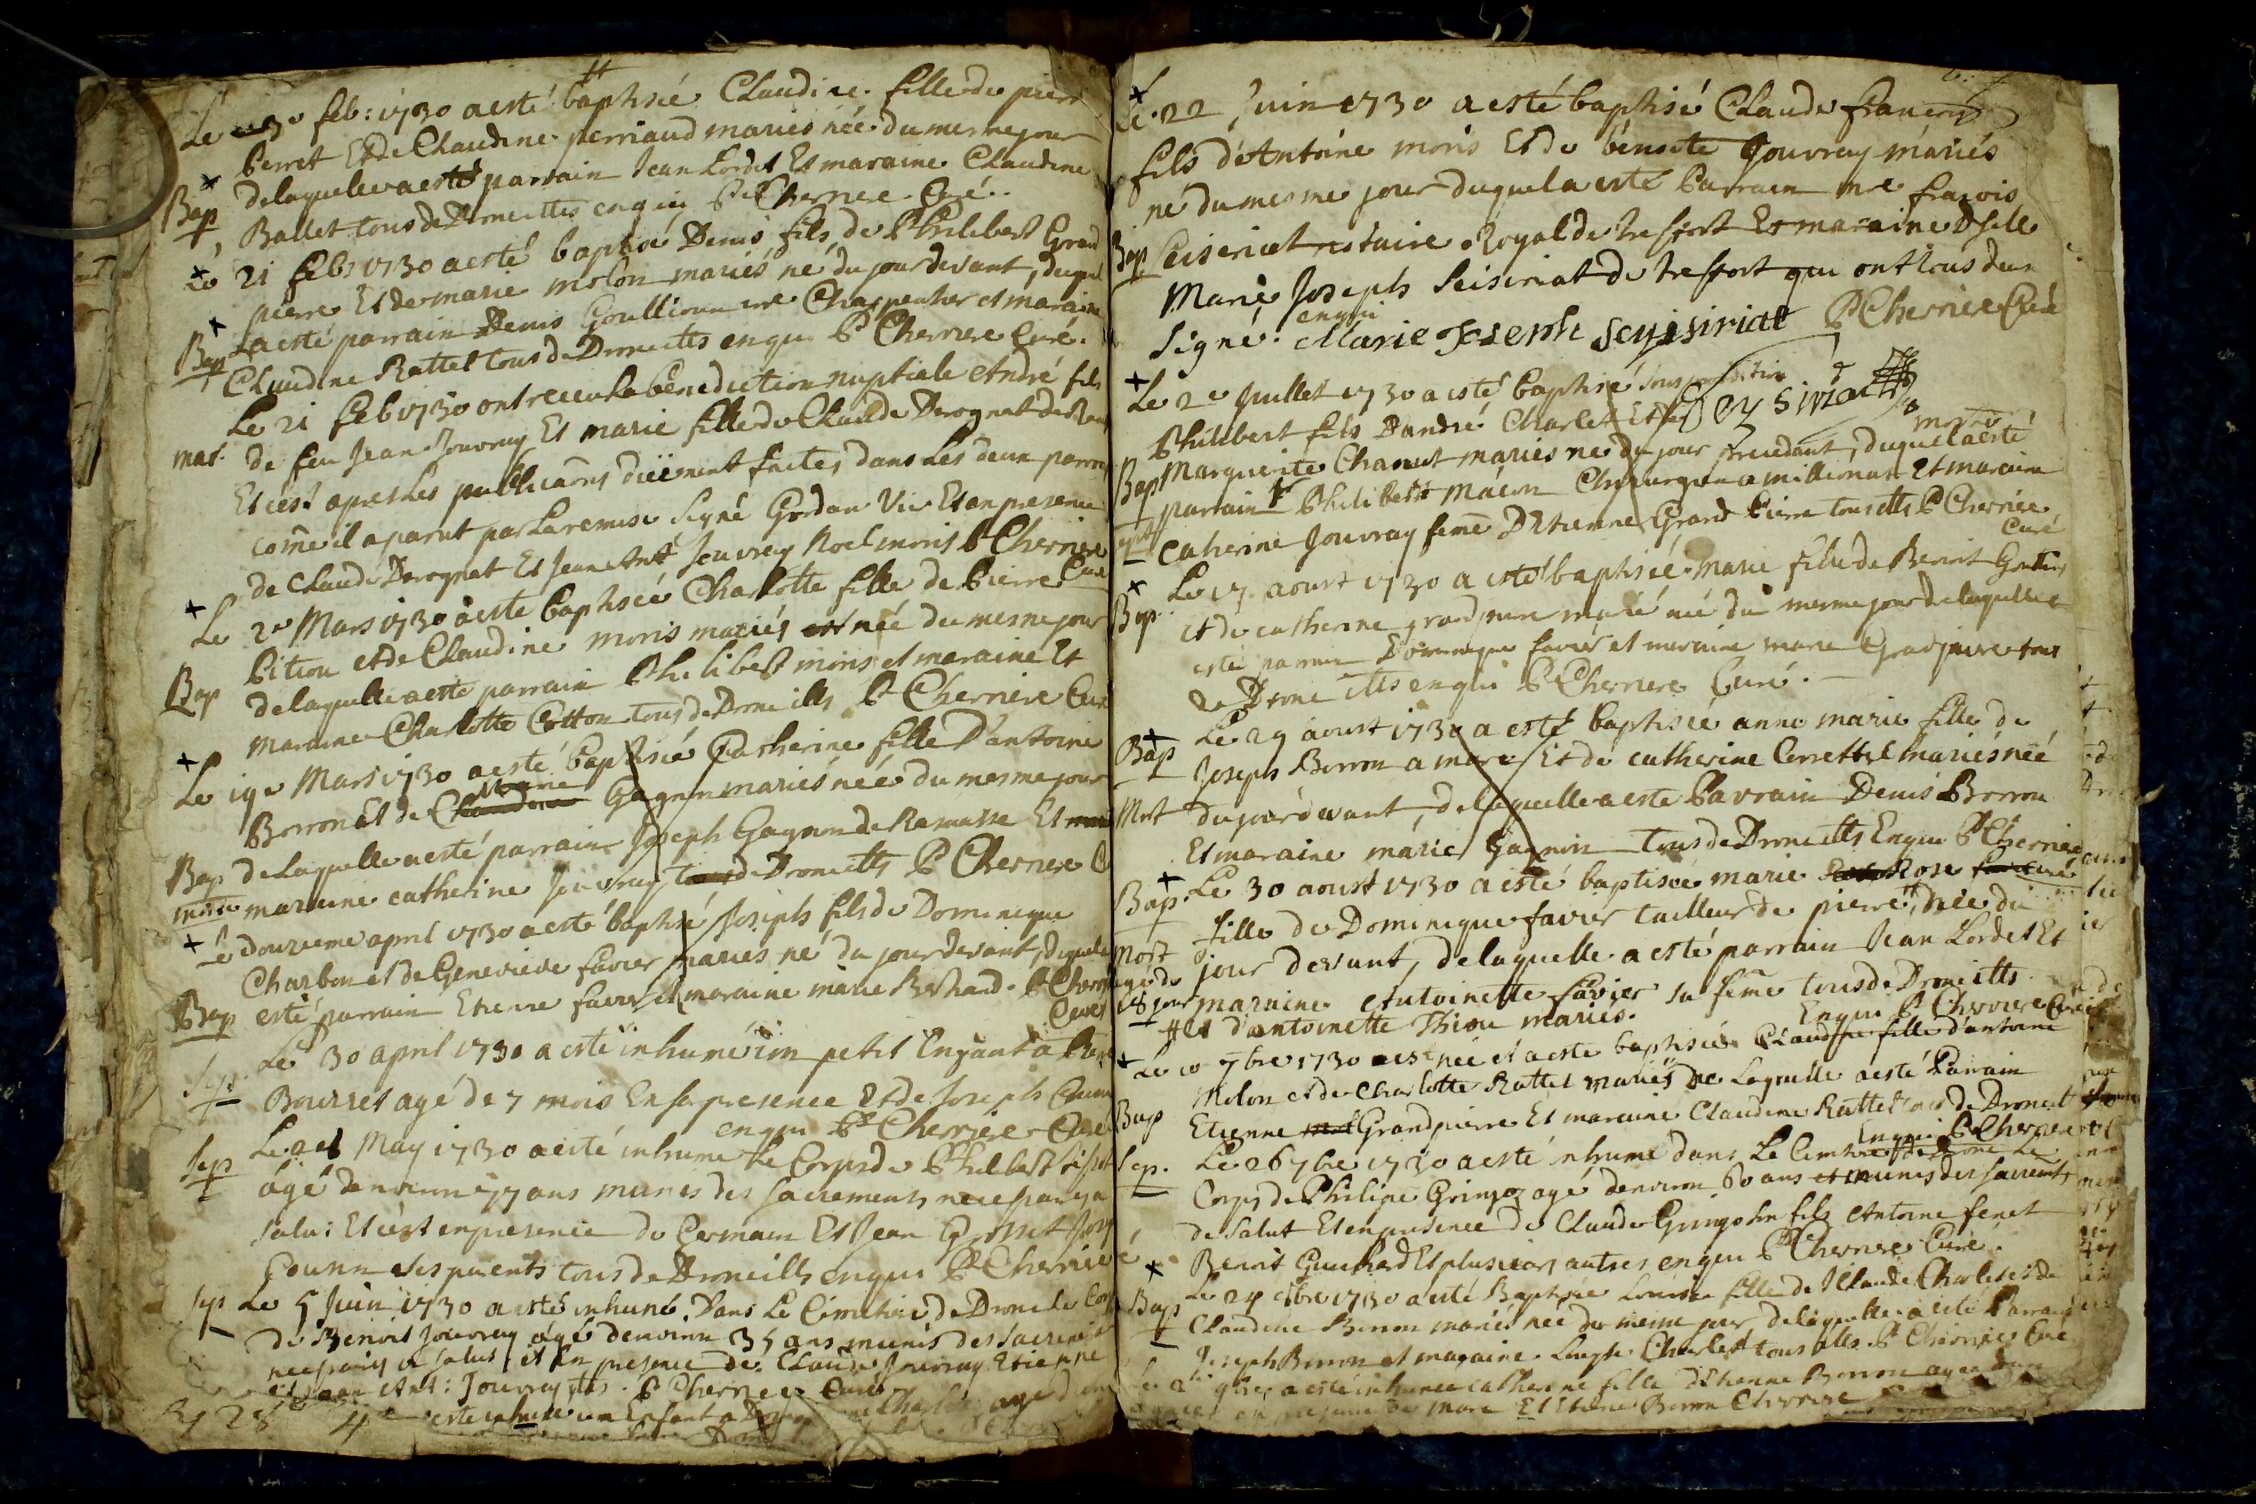 Le 3e feb: 1730 a esté baptisée Claudine fille de pierre
perret Et de Claudine perriaud mariés née du mesme jour
Bap de laquelle a esté parrain Jean Lordet Et maraine Claudine
Ballet tous de Dromeilles en qui P Cherriere Curé.
Le 21 feb 1730 a esté baptisé Denis fils de Philibert Grand
pierre Et de marie molon mariés né du jour devant, duquel
Bap a esté parrain Denis Goullion me Charpentier et maraine
Claudine Rattet tous de Dromeills en qui P Cherriere Curé.
Le 21 feb 1730 ont receu la benediction nuptiale André fils
mar. de feu Jean Jouvray Et marie fille de Claude Derognat de
Et c'est apres les publicaons düement faites dans les deux
come il aparut par la remise Signé Gordan Vic Et en presence
de Claude Derognat Et Jean Ant Jouvray Noel moris P Cherriere Curé
Le 2e Mars 1730 a esté baptisée Charlotte fille de Pierre
Bap Pition et de Claudine moris mariés née du mesme jour
de laquelle a esté parrain Philibert moris et maraine Et
maraine Charlotte Cotton tous de Dromeills P Cherriere Curé
Le 19e Mars 1730 a esté baptisée Catherine fille D'antoine
Borron Et de Claudine marie Gagnon mariés née du mesme jour
Bap de laquelle a esté parrain Joseph Gagnon de Ramasse Et
morte maraine catherine Jouvray tous de Dromeills P Cherriere C
Le douzieme april 1730 a esté baptisé Joseph fils de Dominique
Charbon et de Genevieve favier mariés né du jour devant, duquel a
Bap esté parrain Etienne favier et maraine marie Berthand. P Cherriere Curé
Sep. Le 30 april 1730 a esté inhumé un petit Enfant a
Bourret agé de 7 mois En sa presence Et de Joseph
en qui P Cherriere Curé
Sep Le 21 May 1730 a esté inhumé le Corps de Philibert
agé denviron 77 ans munis des sacrements necessaires a
salu: Et c'est en presence de Germain Et Jean Grosset
ses parents tous de Dromeills en qui P Cherriere
Sep Le 5 Juin 1730 a esté inhumé Dans Le Cimetiere de Drom le Corp
de Benoit Jouvray agé denviron 35 ans munis des Sacrements
necessaires a salut, et En presence de Claude Jouvray Etienne
Et Jean Ant: Jouvray P Cherriere Curé
28 4 esté inhumé un Enfant a
Le 22 Juin 1730 a esté baptisé Claude francois
fils d'Antoine moris Et de benoite Jouvray mariés
né du mesme jour duquel a esté Parrain mre fracois
Bap Seisiriat notaire Royal de tresfort Et maraine Dselle
Marie Joseph Seisiriat de tresfort qui ont tous deux
Signé. en qui Marie Joseph Seyisiriat P Cherriere Curé
Seysiriat
Le 2e Juillet 1730 a esté baptisé sous condition
Philibert fils D'andré Charlet Et de
Bap Marguerite Chanut mariés né du jour precedant, duquel a esté
parrain Philibert Macon Chirurgien a millionas Et maraine
catherine Jouvray feme D'Etienne Grand Pierre tous dits P Cherriere Curé
Le 17 aoust 1730 a esté baptisée Marie fille de Benoit
Bap et de catherine grandpierre mariés née du mesme jour de laquelle a
esté parrain Dominique favier et maraine marie Grandpierre tous
de Dromeills en qui P Cherriere Curé.
Bap Le 29 aoust 1730 a esté baptisée anne marie fille de
Joseph Borron Et de catherine Cerrettet mariés née
Mort du jour devant, de laquelle a esté Parrain Denis Borron
Et maraine marie Gagnon tous de Dromeills En qui P Cherriere
Bap. Le 30 aoust 1730 a esté baptisée marie Rose
fille de Dominique favier tailleur de pierre, née du
Mort jour devant, de laquelle a esté parrain Jean Lordet Et
maraine Antoinette favier sa feme tous de Dromeills
# Et d'antoinette Thion mariés. En qui P Cherriere Curé
Le 10 7bre 1730 est née et a esté baptisée Claudine fille d'antoine
Molon et de Charlotte Rattet mariés De Laquelle a esté Parrain
Bap Etienne Grandpierre Et maraine Claudine Rattet tous de Dromeil
En qui P Cherriere
Sep. Le 26 7bre 1730 a esté inhumé dans Le Cimetiere de Drome Le
Corps de Philipe Gringoz agé denviron 60 ans et munis des sacrements
de salut Et en presence de Claude Gringo son fils Antoine feret
Benoit Guichard Et plusieurs autres en qui P Cherriere Curé.
Bap Le 24 8bre 1730 a esté Baptisée Louise fille de Claude Charlet Et de
Claudine Borron mariés née du mesme jour de laquelle a esté Parrain
Joseph Borron et maraine Charlet tous dits P Cherriere Curé
Le 2 9bre a esté inhumée catherine fille d'Etienne Borron agée
en presence de marc Et Etiene Borron Cherriere